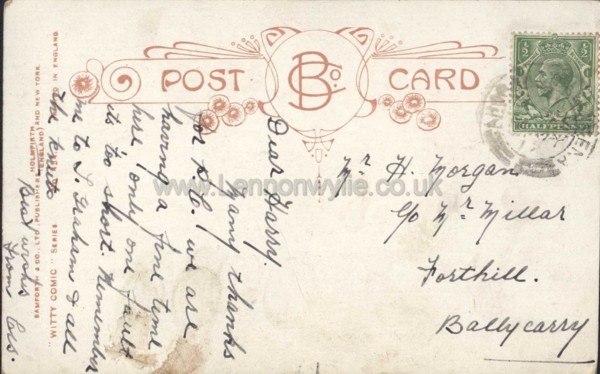 POST CARD
B Co.
HALFPENNY
Dear Harry.
Many thanks
for P.C. we are
having a fine time
here only one fault
its too short. Remember
me to S. Graham & all
the
Best wishes
From
Mr H. Morgan
c/o Mr Millar
Forthill.
Ballycarry
BAMFORTH & CO., LTD., PUBLISHERS
HOLMFIRTH (ENGLAND) AND NEW YORK.
"WITTY COMIC" SERIES
IN ENGLAND.
www.Lennonwylie.co.uk